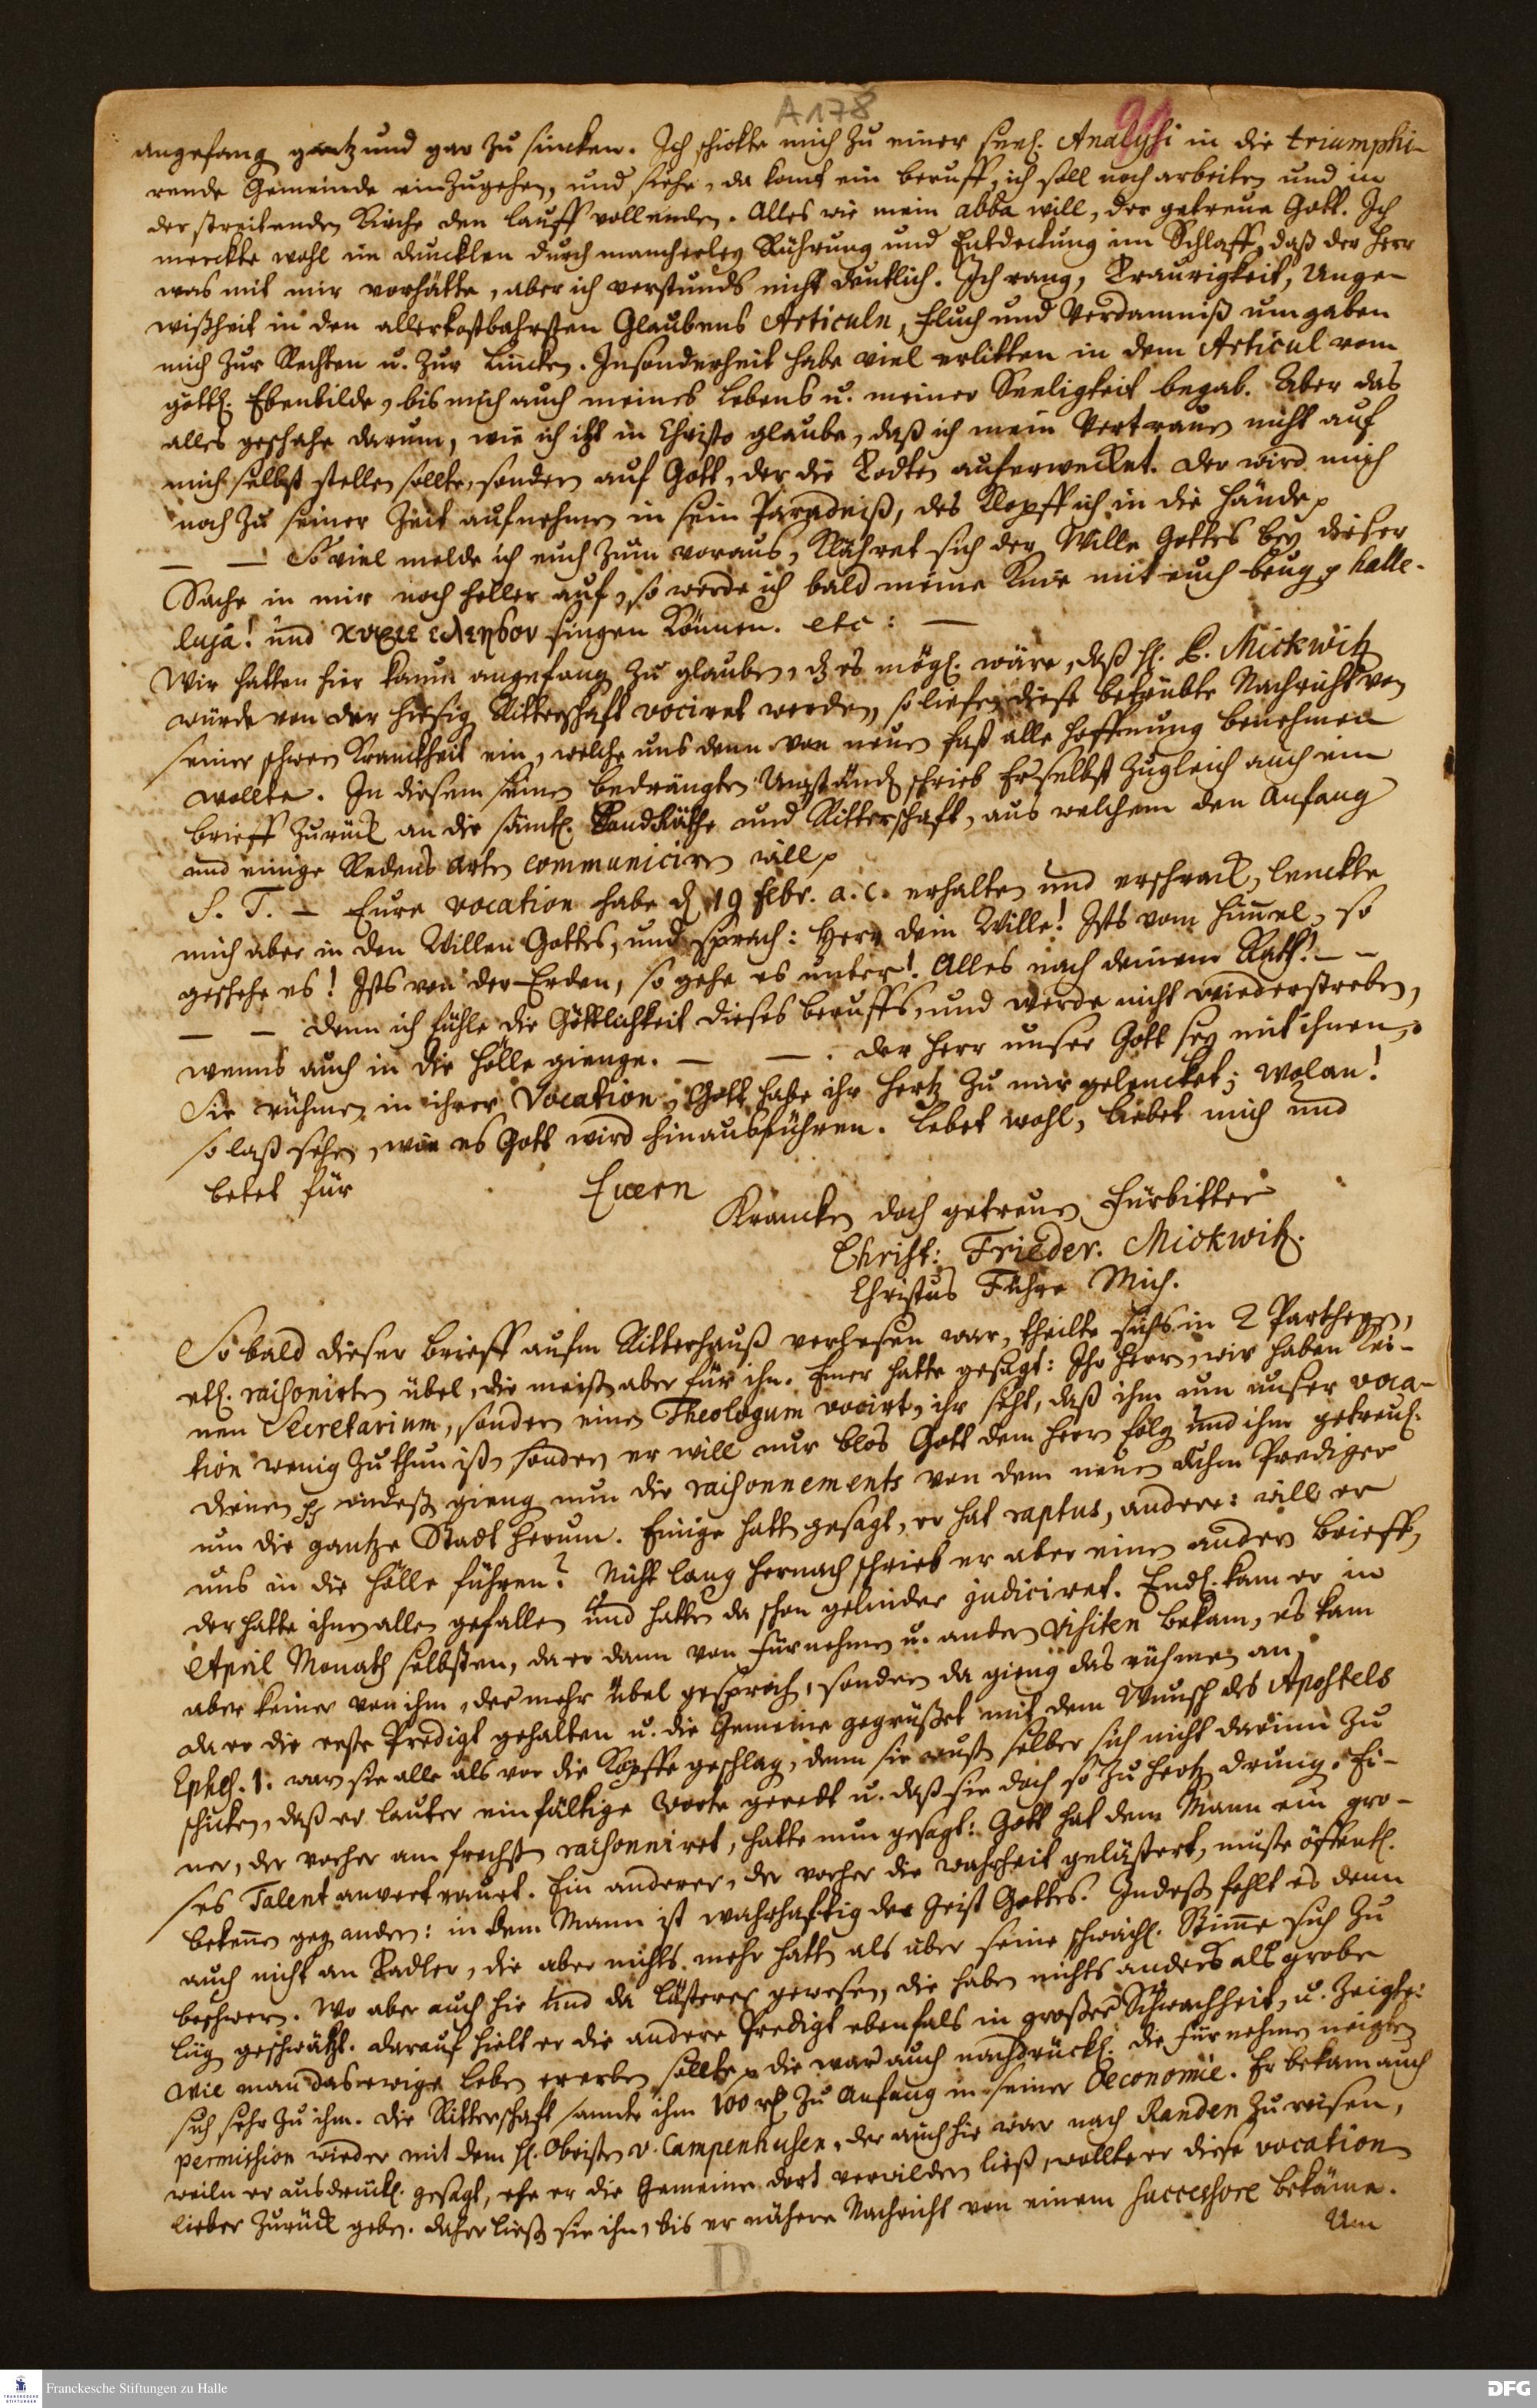 A 178
angefang gantz und gar zu sincken. Ich schickte mich zu einer seel. Analysi in die triumphi-
rende Gemeinde einzugehen, und siehe, da komt ein beruff, ich soll noch arbeiten und in
der streitenden Kirche den lauff vollenden. Alles wie mein abba will, der getreue Gott. Ich
merckte wohl im duncklen durch mancherley Rührung und Entdeckung im Schlaff, daß der Herr
was mit mir vorhätte, aber ich verstunds nicht deutlich. Ich rang, Traurigkeit, Unge-
wißheit in den allerkostbahrsten Glaubens Articuln, Fluch und Verdamniß umgaben
mich zur Rechten u. zur Lincken. Insonderheit habe viel erlitten in dem Articul vom
göttl. Ebenbilde, bis mich auch meines Lebens u. meiner Seeligkeit begab. Aber das
alles geschahe darum, wie ich itzt in Christo glaube, daß ich mein Vertrauen nicht auf
mich selbst stellen sollte, sondern auf Gott, der die Todten auferwecket. Der wird mich
noch zu seiner Zeit aufnehmen in sein Paradeiß, des klopff ich in die Hände
— — So viel melde ich euch zum voraus, klähret sich der Wille Gottes bey dieser
Sache in mir noch heller auf, so werde ich bald meine Knie mit euch beug halle-
luja! und κυριε ελεησον singen können. etc: —
Wir hatten hier kaum angefang zu glauben, dz es mögl. wäre, daß H. P. Mickwitz
würde von der hiesig Ritterschaft vociret werden, so lieff diese betrübte Nachricht von
seiner schwer Kranckheit ein, welche uns denn von neuen fast alle Hoffnung benehmen
wollte. In diesem seinen bedrängten Umständ schrieb Er selbst zugleich auch ein
brieff zurück an die sämtl. LandRäthe und Ritterschaft, aus welchem den Anfang
und einige Redens arten communiciren will
S. T. — Eure vocation habe d. 19 Febr. a. c. erhalten und erschrack, lenckte
mich aber in den Willen Gottes, und sprach: Herr dein Wille! Ists vom Himmel, so
geschehe es! Ists von der Erden, so gehe es unter! Alles nach deinem Rath! — —
— — denn ich fühle die Göttlichkeit dieses beruffs, und werde nicht wiederstreben,
wenns auch in die Hölle gienge. — — . Der Herr unser Gott sey mit ihnen.
Sie rühmen in ihrer Vocation, Gott habe ihr Hertz zu mir gelencket; wolan!
so laß sehen, wie es Gott wird hinausführen. Lebet wohl, liebet mich und
betet für Euern
Krancken doch getreuen Fürbitter
Christ: Frieder. Mickwitz.
Christus Führe Mich.
So bald dieser brieff aufm Ritterhauß verlesen war, theilte sichs in 2 Partheyen,
etl. raisonirten übel, die meisten aber für ihn. Einer hatte gesagt: Ihr Herrn, wir haben kei-
nen Secretarium, sondern einen Theologum vocirt, ihr seht, daß ihm um unser voca-
tion wenig zu thun ist, sondern er will nur blos Gott dem Herrn folg und ihm getreul.
dienen indeß gieng nun die raisonnements von dem neuen Prediger
um die gantze Stadt herum. Einige hatten gesagt, er hat raptus, andere: will er
uns in die Hölle führen? Nicht lang hernach schrieb er aber einen andern brieff,
der hatte ihnen allen gefallen und hatten da schon gelinder judiciret. Endl. kam er im
April Monath selbsten, da er dann von Fürnehmen u. andern Visiten bekam, es kam
aber keiner von ihm, der mehr übel gesproch, sondern da gieng das rühmen an,
da er die erste Predigt gehalten u. die Gemeine gegrüßet mit dem Wunsch des Apostels
Ephes. 1. war sie alle als vor die Köpffe geschlag, denn sie wust selber sich nicht darinn zu
schicken, daß er lauter einfältige Worte geredt u. daß sie doch so zu Hertz drung. Ei-
ner, der vorher am frechsten raisonniret, hatte nun gesagt: Gott hat dem Mann ein gro-
ses Talent anvertrauet. Ein anderer, der vorher die Wahrheit gelästert, muste öffentl.
bekennen geg andern: in dem Mann ist wahrhaftig der Geist Gottes. Indeß fehlt es denn
auch nicht an Tadler, die aber nichts mehr hatten als über seine schwächl. Stimme sich zu
beschwern. Wo aber auch hie und da lästerer gewesen, die haben nichts anders als grobe
lüg geschwätzt. Darauf hielt er die andere Predigt ebenfals in großer Schwachheit, u. zeigte:
Wie man das ewige Leben ererben sollte die war auch nachdrückl. Die Fürnehmen neigten
sich sehr zu ihm. Die Ritterschaft sandte ihm 100 rl zu Anfang in seiner Oeconomie. Er bekam auch
permission wieder mit dem H. Obristen v. Campenhusen, der auch hie war nach Randen zu reisen,
weiln er ausdrückl. gesagt, ehe er die Gemeine dort verwildern ließ, wollte er diese vocation
lieber zurück geben. Daher ließ sie ihn, bis er nähere Nachricht von einem successore bekäme.
Um
D.
Franckesche Stiftungen zu Halle
DFG